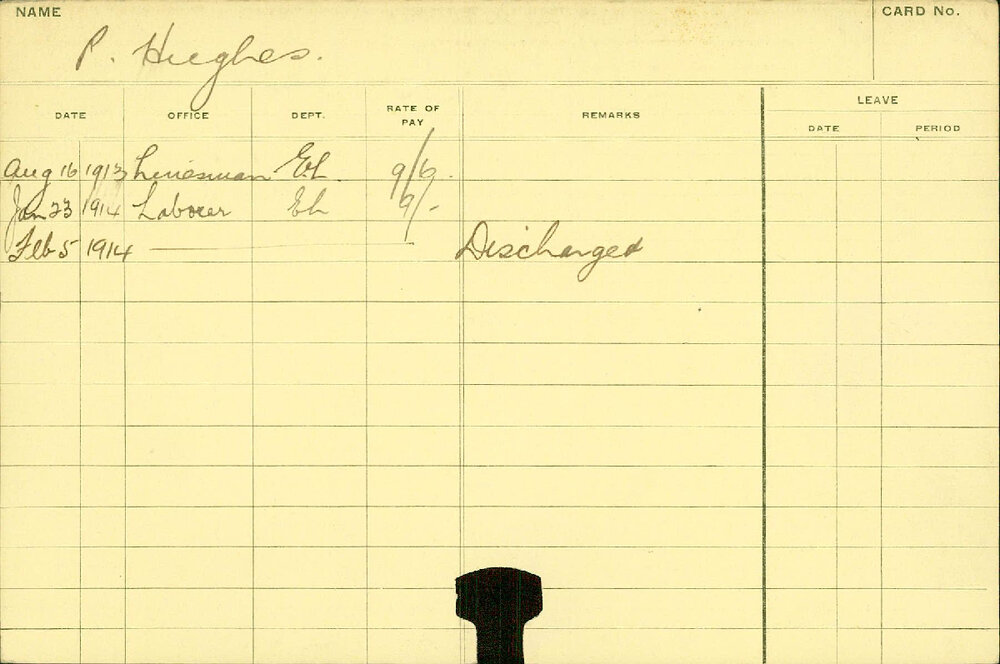 NAME CARD No.
P. Hughes.
DATE OFFICE DEPT. RATE OF PAY REMARKS LEAVE
DATE PERIOD
Aug 16 1913 Linesman El. 9/6.
Jan 23 1914 Laborer El 9/-
Feb 5 1914 Discharged